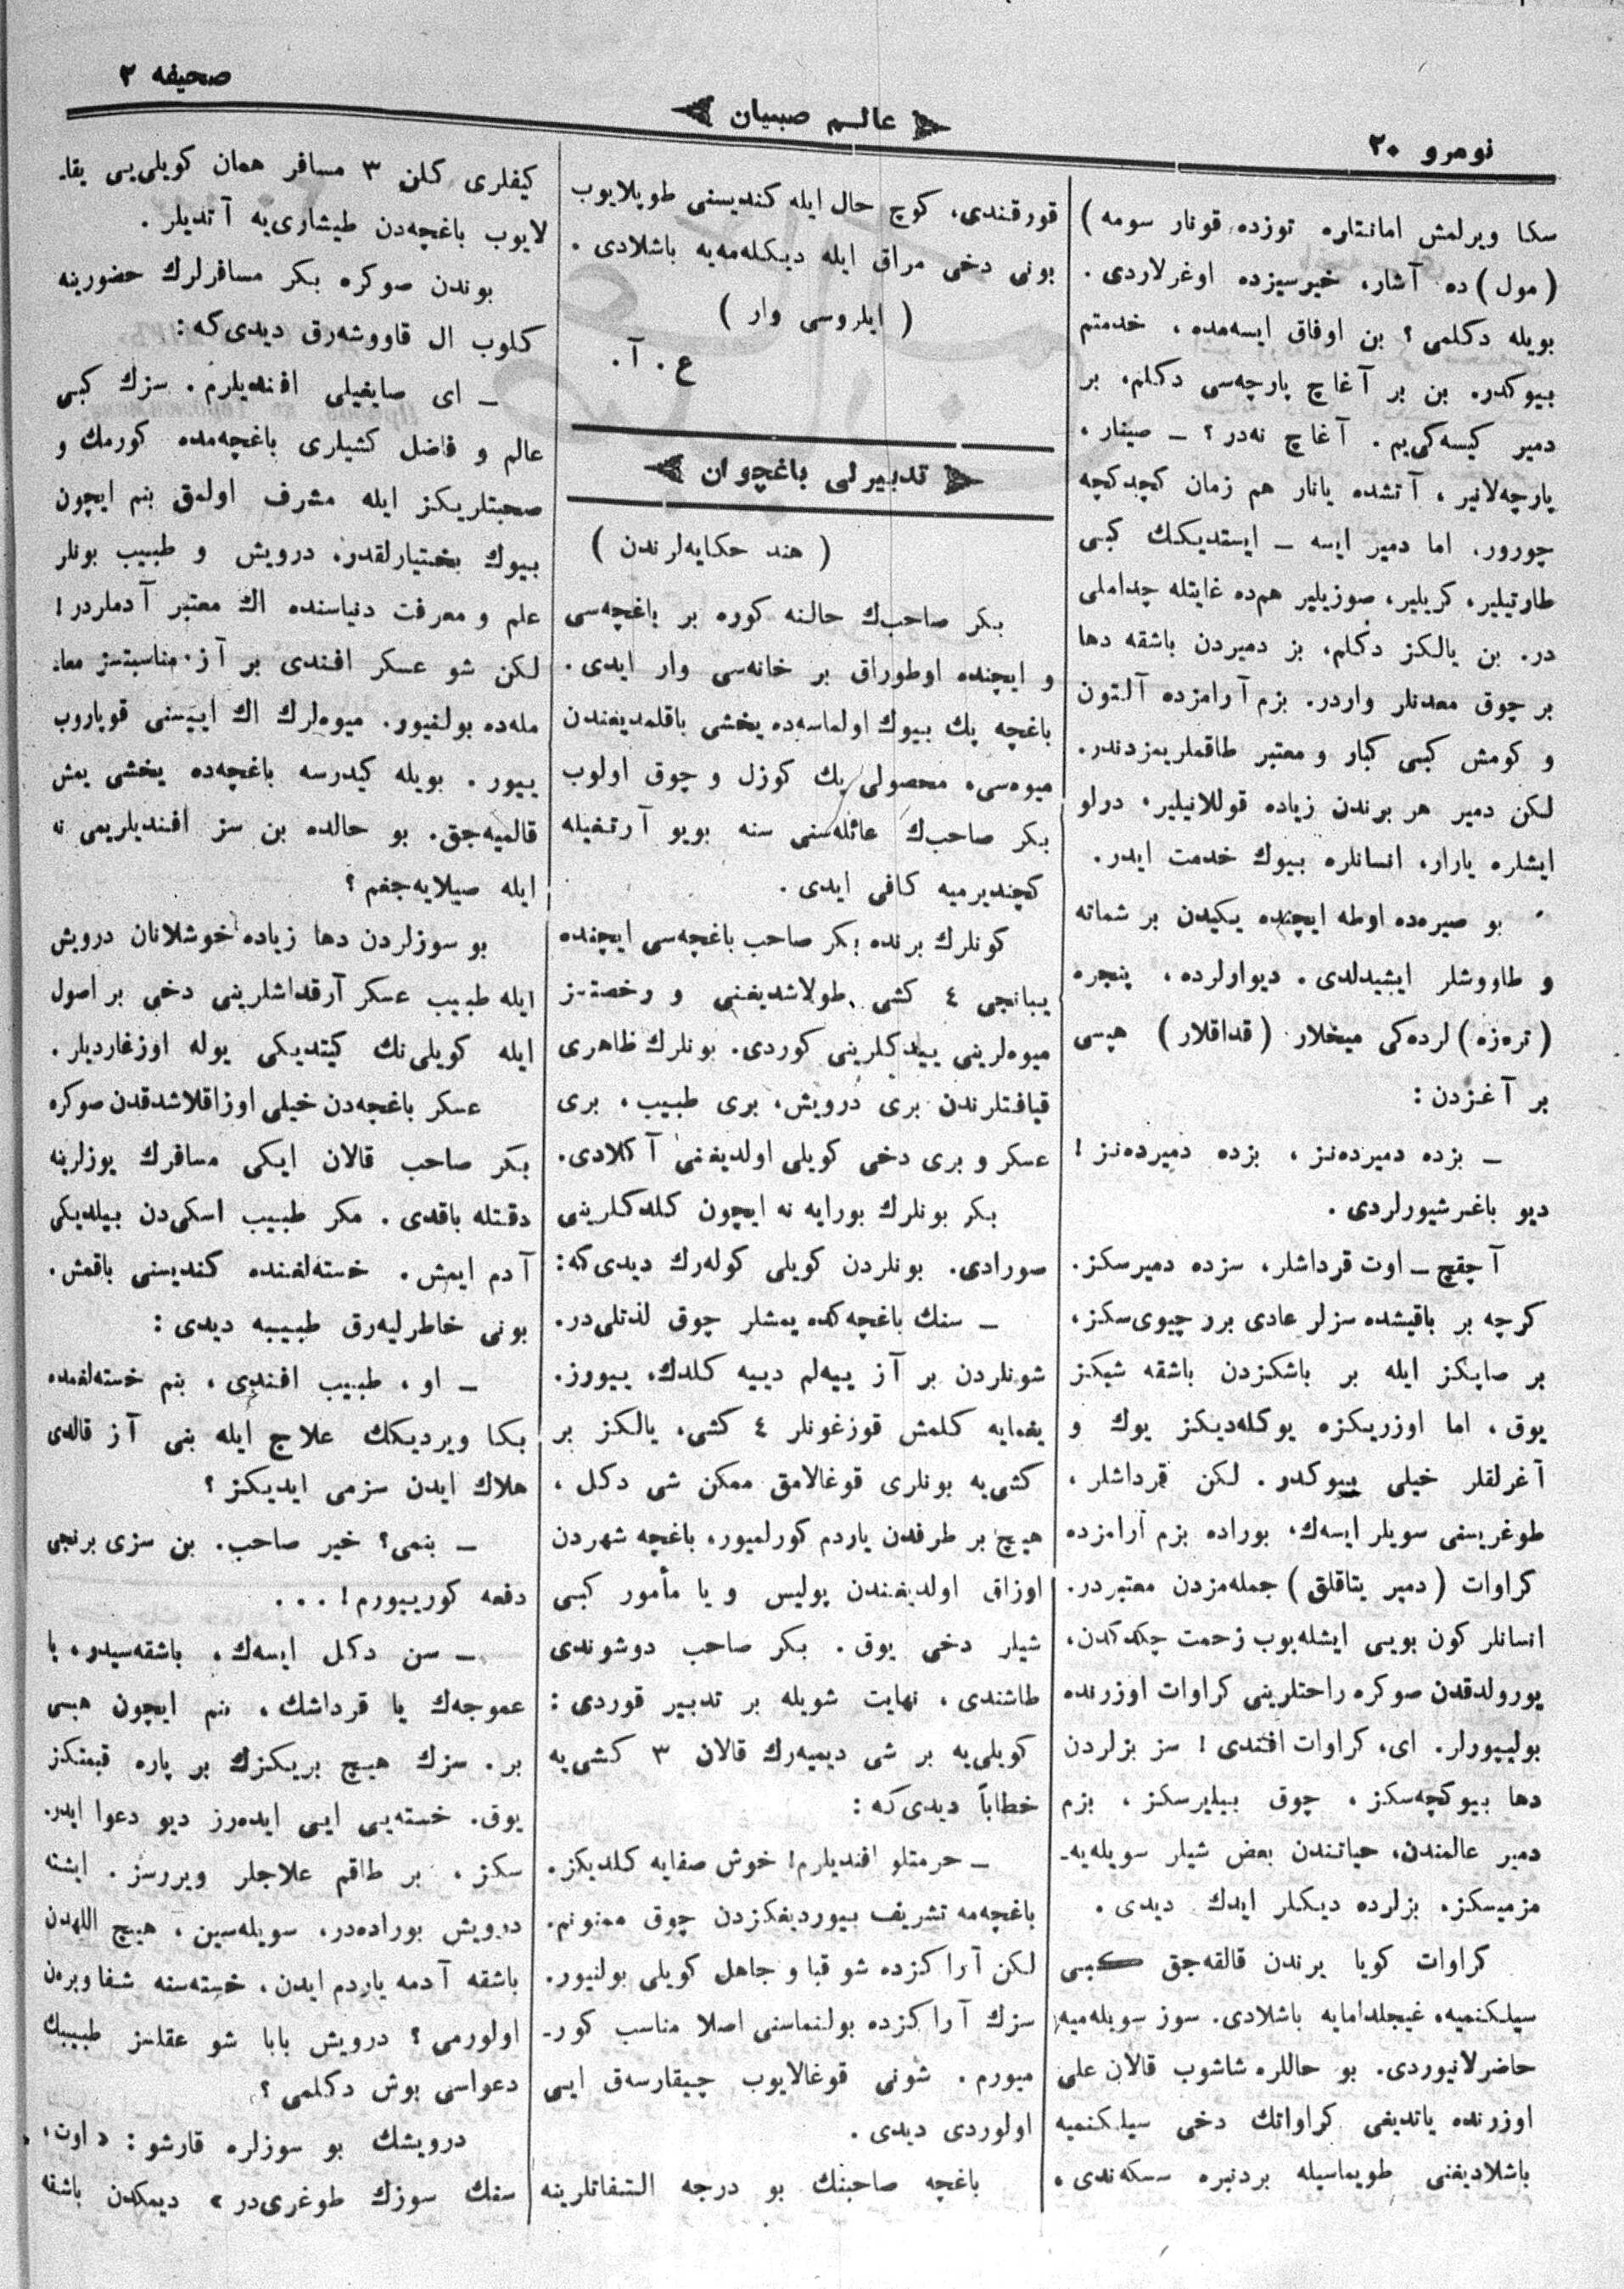 صحیفه ۲
عالم صبیان
نومرو ۲۰
سکا ویرلمش امانتلره توزده قونار سومه )
( مول ) ده آشار، خیرسیزده اوغرلاردی .
بویله دکلمی ؟ بن اوفاق ایسه‌مده ، خدمتم
بیوکدر. بن بر آغاج پارچه‌سی دکلم، بر
دمیر کیسه‌کی‌یم . آغاج نه‌در ؟ ـ صینار ،
پارچه‌لانیر ، آتشده یانار هم زمان کچدکچه
چورور. اما دمیر ایسه ـ ایستدیکك کبی
طارتیلیر، کریلیر، صوزیلیر هم‌ده غایتله چداملی
در. بن یالکز دکلم، بز دمیردن باشقه دها
بر چوق معدنلر واردر. بزم آرامزده آلتون
و کومش کبی کبار و معتبر طاقملریمزدندر.
لکن دمیر هر برندن زیاده قوللانیلیر. درلو
ایشلره یارار، انسانلره بیوك خدمت ایدر.
بو صیره‌ده اوطه ایچنده یکیدن بر شماته
و طاووشلر ایشیدلدی . دیوارلرده ، پنجره
( تره‌زه ) لرده‌کی میخلار ( قداقلار ) هپسی
بر آغزدن :
ـ بزده دمیرده‌نز ، بزده دمیرده‌نز !
دیو باغرشیورلردی .
آچقچ ـ اوت قرداشلر، سزده دمیرسکز.
کرچه بر باقیشده سزلر عادی برر چیوی‌سکز،
بر صاپکز ایله بر باشکزدن باشقه شیکز
یوق ، اما اوزریکزه یوکله‌دیکز یوك و
آغرلقلر خیلی بیوکدر . لکن قرداشلر ،
طوغریسنی سویلر ایسه‌ك، بوراده بزم آرامزده
کراوات ( دمیر یتاقلق ) جمله‌مزدن معتبردر.
انسانلر کون بویی ایشله‌یوب زحمت چکدکدن،
یورولدقدن صوکره راحتلرینی کراوات اوزرنده
بولیپورلر. ای، کراوات افندی ! سز بزلردن
دها بیوکچه‌سکز ، چوق بیلیرسکز ، بزم
دمیر عالمندن، حیاتندن بعض شیلر سویله‌یه‌ـ
مزمیسکز. بزلرده دیکلر ایدك دیدی .
کراوات کویا یرندن قالقه‌جق کبی
سیلکنمیه، غیجلدامایه باشلادی. سوز سویله‌میه
حاضرلانیوردی. بو حاللره شاشوب قالان علی
اوزرنده یاتدیغی کراواتك دخی سیلکنمیه
باشلادیغنی طویماسیله بردنبره سسکه‌ندی ،
قورقندی، کوچ حال ایله کندیسنی طوپلایوب
بونی دخی مراق ایله دیکله‌مه‌یه باشلادی .
( ایلروسی وار )
ع . آ .
تدبیرلی باغچوان
( هند حکایه‌لرندن )
بکر صاحب‌ك حالنه کوره بر باغچه‌سی
و ایچنده اوطوراق بر خانه‌سی وار ایدی .
باغچه پك بیوك اولماسه‌ده یخشی باقلمدیغندن
میوه‌سی، محصولی پك کوزل و چوق اولوب
بکر صاحب‌ك عائله‌سنی سنه بویو آرتغیله
کچندیرمیه کافی ایدی .
کونلرك برنده بکر صاحب باغچه‌سی ایچنده
یبانجی ٤ کشی طولاشدیغنی و رخصتسز
میوه‌لرینی ییدکلرینی کوردی. بونلرك ظاهری
قیافتلرندن بری درویش، بری طبیب، بری
عسکر و بری دخی کویلی اولدیغنی آکلادی.
بکر بونلرك بورایه نه ایچون کلدکلرینی
صورادی. بونلردن کویلی کوله‌رك دیدی‌که :
ـ سنك باغچه‌کده یمشلر چوق لذتلی‌در.
شونلردن بر آز ییه‌لم دییه کلدك، ییورز.
یغمایه کلمش قوزغونلر ٤ کشی، یالکز بر
کشی‌یه بونلری قوغالامق ممکن شی دکل ،
هیچ بر طرفدن یاردم کورلمیور، باغچه شهردن
اوزاق اولدیغندن پولیس و یا مأمور کبی
شیلر دخی یوق . بکر صاحب دوشوندی
طاشندی ، نهایت شویله بر تدبیر قوردی :
کویلی‌یه بر شی دیمیه‌رك قالان ۳ کشی‌یه
خطاباً دیدی‌که :
ـ حرمتلو افندیلرم! خوش صفایه کلدیکز.
باغچه‌مه تشریف بیوردیغکزدن چوق ممنونم.
لکن آراکزده شو قبا و جاهل کویلی بولنیور.
سزك آراکزده بولنماسنی اصلا مناسب کورـ
میورم . شونی قوغالایوب چیقارسه‌ق ایی
اولوردی دیدی .
باغچه صاحبنك بو درجه التفاتلرینه
کیفلری کلن ۳ مسافر همان کویلی‌یی یقاـ
لایوب باغچه‌دن طیشاری‌یه آتدیلر .
بوندن صوکره بکر مسافرلرك حضورینه
کلوب ال قاووشه‌رق دیدی‌که :
ـ ای صایغیلی افندیلرم . سزك کبی
عالم و فاضل کشیلری باغچه‌مده کورمك و
صحبتلریکز ایله مشرف اولمق بنم ایچون
بیوك بختیارلقدر. درویش و طبیب بونلر
علم و معرفت دنیاسنده اك معتبر آدملردر!
لکن شو عسکر افندی بر آز مناسبتسز معاـ
مله‌ده بولنیور. میوه‌لرك اك اییسنی قوپاروب
ییور . بویله کیدرسه باغچه‌ده یخشی یمش
قالمیه‌جق. بو حالده بن سز افندیلریمی نه
ایله صیلایه‌جغم ؟
بو سوزلردن دها زیاده خوشلانان درویش
ایله طبیب عسکر آرقداشلرینی دخی بر اصول
ایله کویلی‌نك کیتدیکی یوله اوزغاردیلر .
عسکر باغچه‌دن خیلی اوزاقلاشدقدن صوکره
بکر صاحب قالان ایکی مسافرك یوزلرینه
دقتله باقدی . مکر طبیب اسکی‌دن بیلدیکی
آدم ایمش . خسته‌لغنده کندیسنی باقمش .
بونی خاطرلیه‌رق طبیبه دیدی :
ـ او ، طبیب افندی ، بنم خسته‌لغمده
بکا ویردیکك علاج ایله بنی آز قالدی
هلاك ایدن سزمی ایدیکز ؟
ـ بنمی؟ خیر صاحب. بن سزی برنجی
دفعه کوریپورم! . . .
ـ سن دکل ایسه‌ك ، باشقه‌سیدر، یا
عموجه‌ك یا قرداشك ، بنم ایچون هپسی
بر. سزك هیچ بریکزك بر پاره قیمتکز
یوق. خسته‌یی ایی ایده‌رز دیو دعوا ایدر‌ـ
سکز ، بر طاقم علاجلر ویررسز . ایشته
درویش بوراده‌در، سویله‌سین ، هیچ اللهدن
باشقه آدمه یاردم ایدن ، خسته‌سنه شفا ویره‌ن
اولورمی ؟ درویش بابا شو عقلسز طبیبك
دعواسی بوش دکلمی ؟
درویشك بو سوزلره قارشو : « اوت ،
سنك سوزك طوغری‌در » دیمکدن باشقه